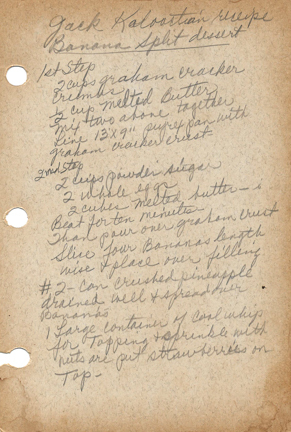 Jack Kaloostian recipe
Banana Split desert
1st Step
2 cups graham cracker
crumbs
½ cup melted Butter
Mix two above together
Line 13x9" pyrex pan with
graham cracker crust
2nd Step
2 cups powder sugar
2 whole eggs
2 cubes melted butter -
Beat for ten minutes
Than pour over graham crust
Slice four Bananas length
wise & place over filling
#2 - Can crushed pineapple
drained well & spread over
Bananas
1 Large container of cool whip
for Topping & sprinkle with
nuts are put strawberries on
Top -